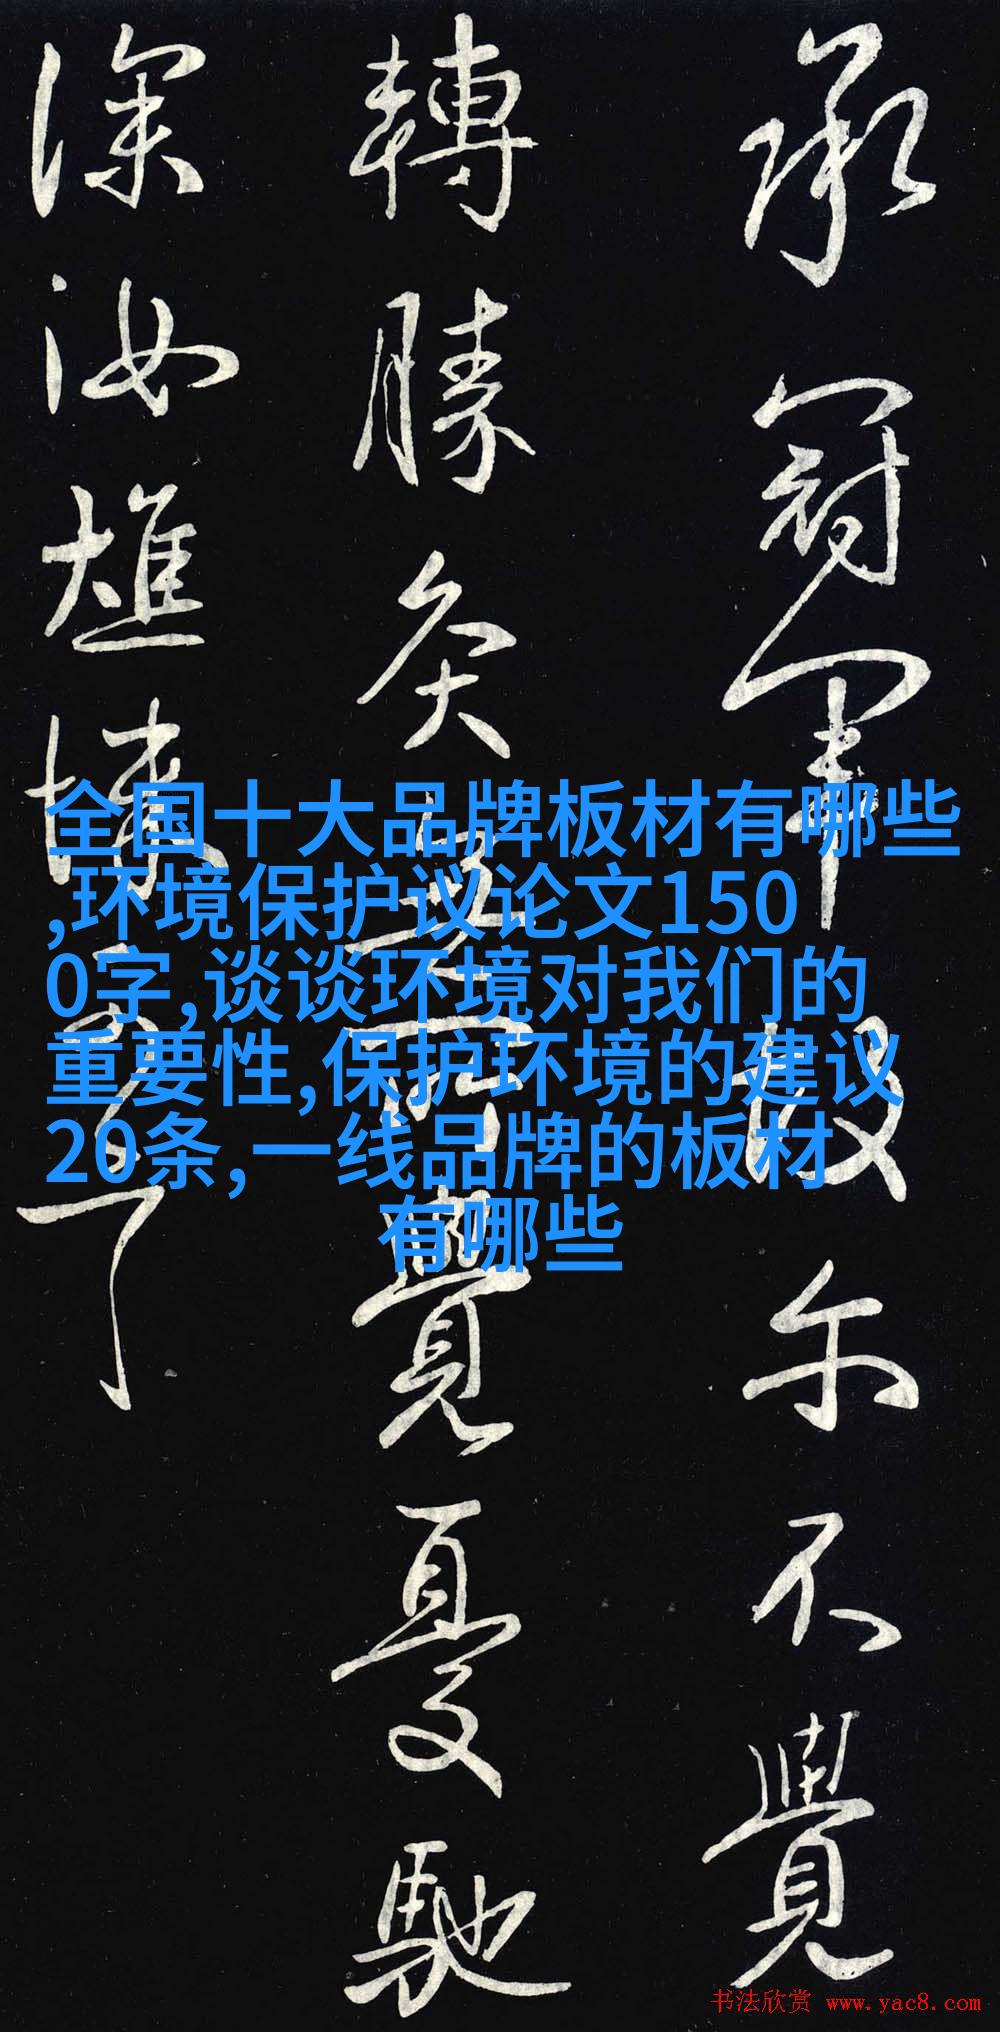 承冠軍故尔不覺
轉勝灸無所覺憂馳
深汝
全国十大品牌板材有哪些
,环境保护议论文150
0字,谈谈环境对我们的
重要性,保护环境的建议
20条,一线品牌的板材
有哪些
书法欣赏 www.yac8.com